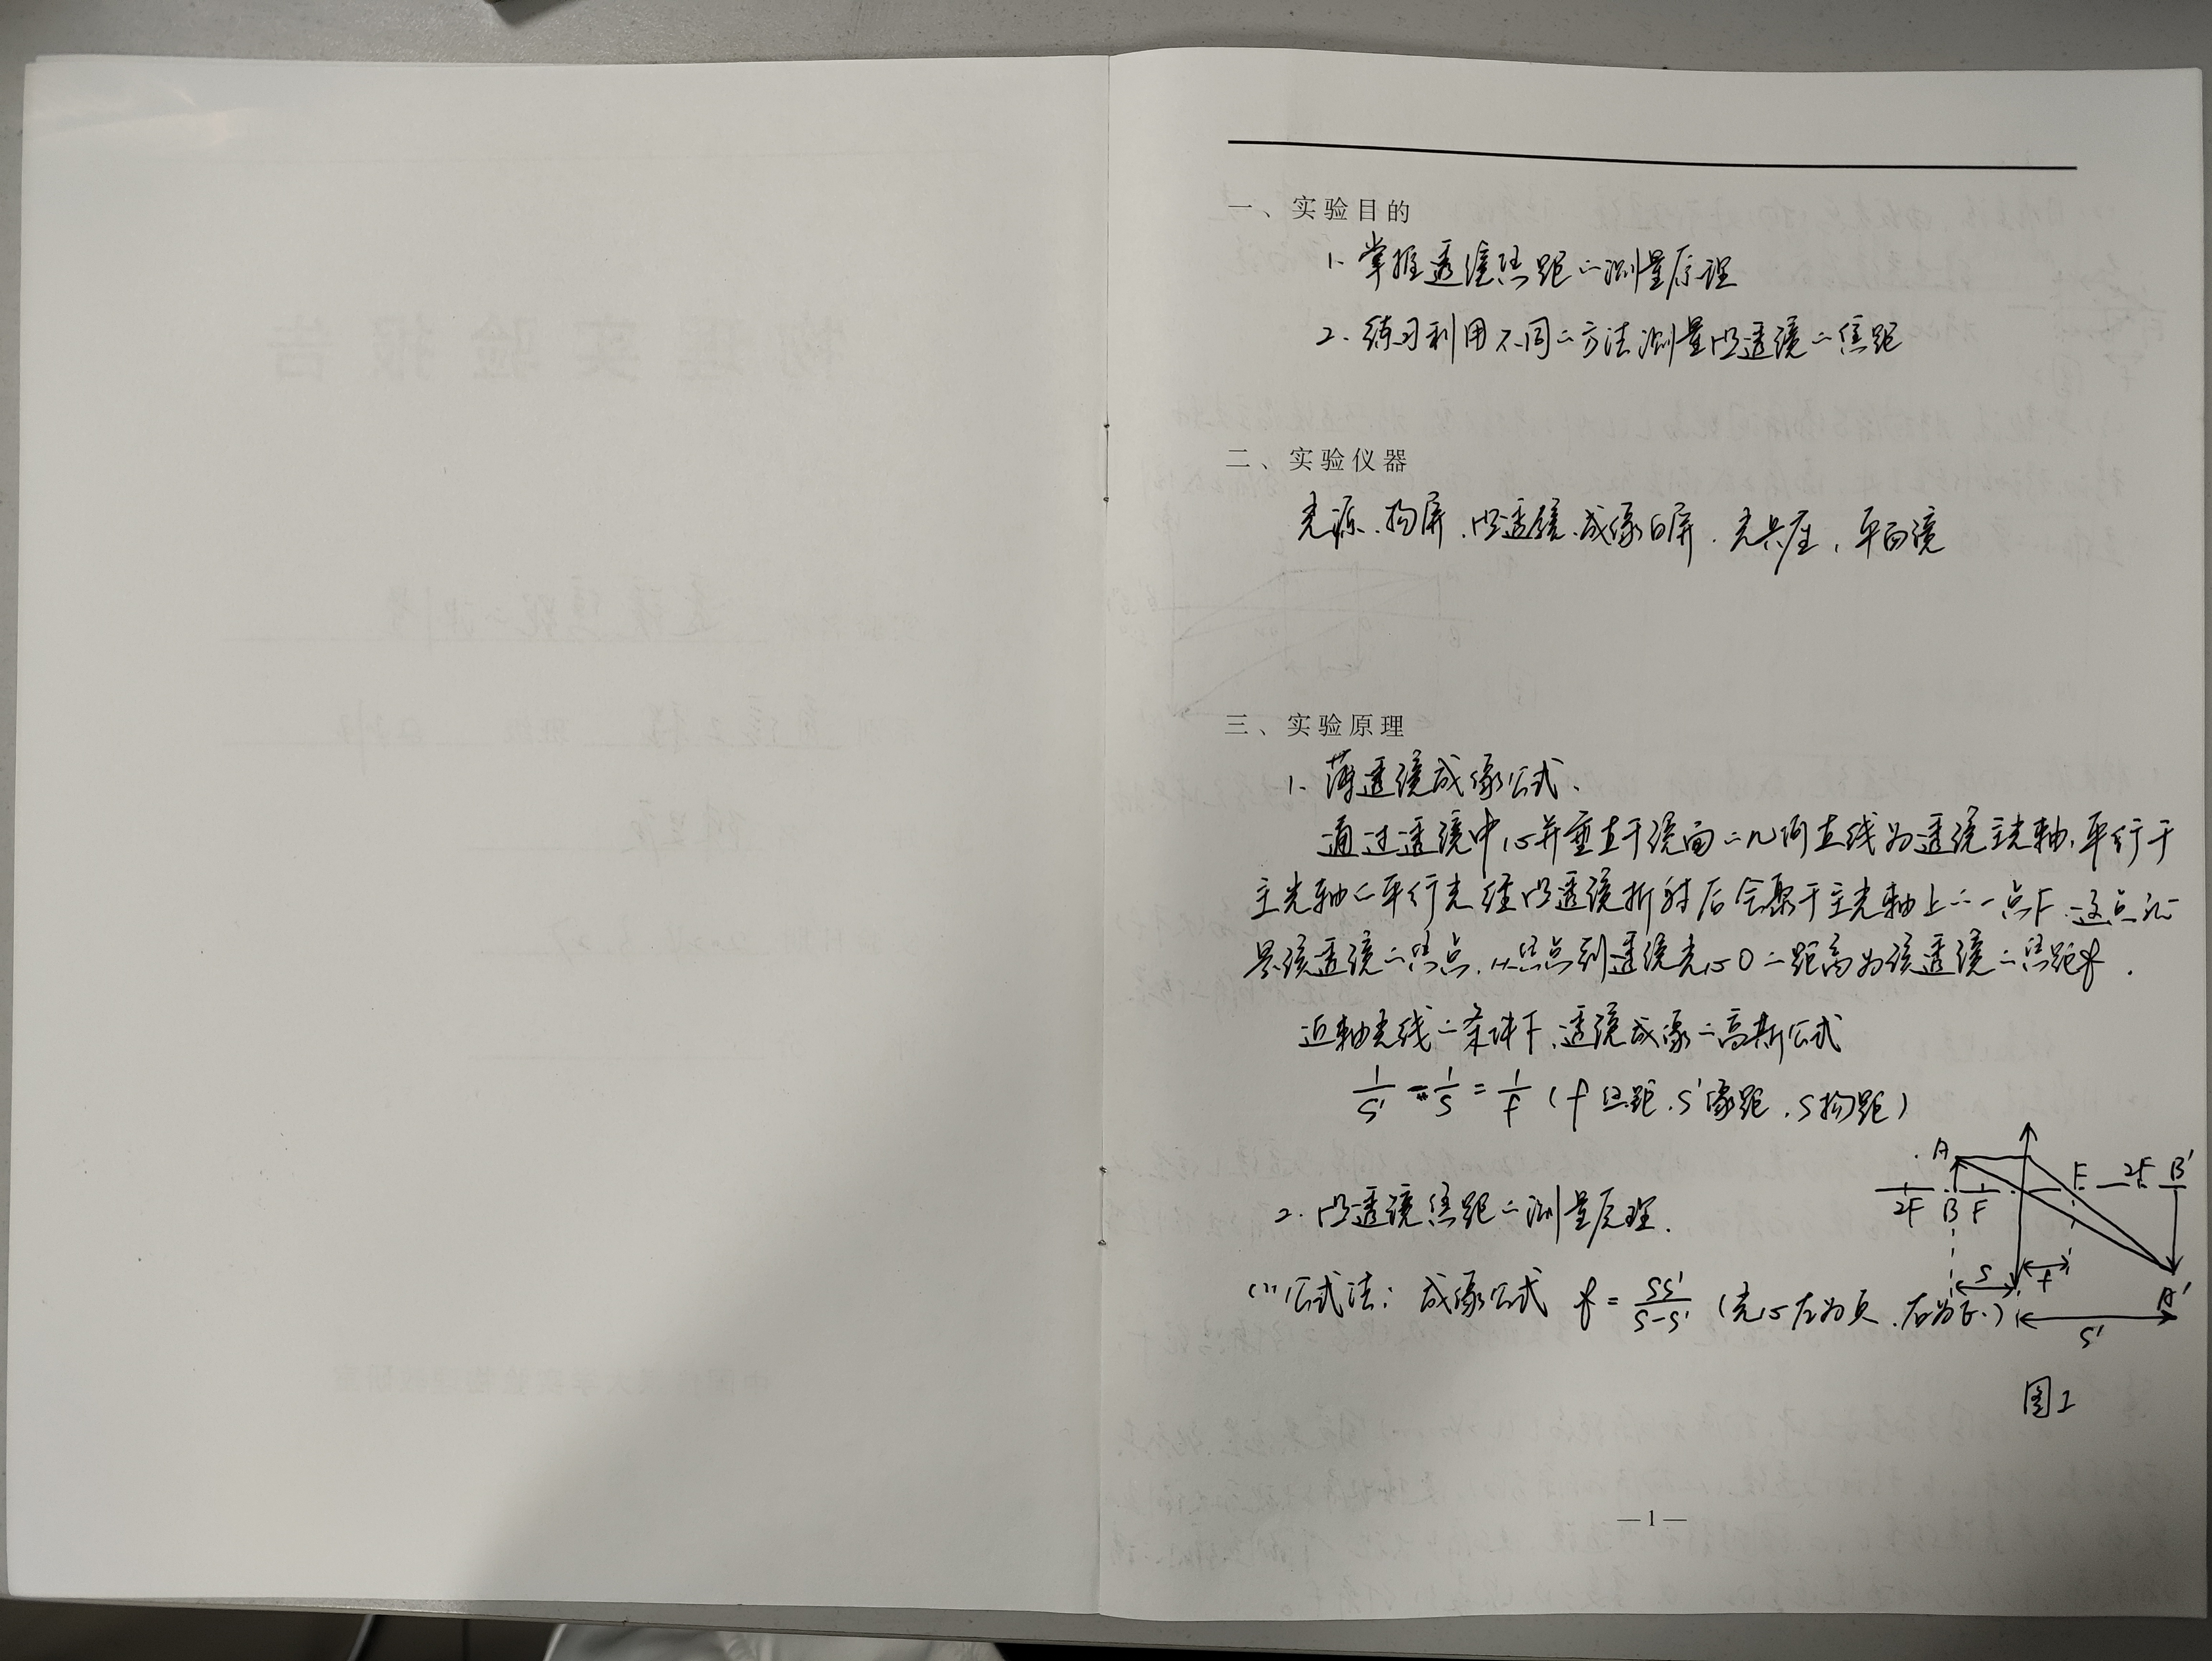 一、实验目的
1. 掌握透镜焦距的测量原理
2. 练习利用不同的方法测量凸透镜的焦距
二、实验仪器
光源、物屏、凸透镜、成像白屏、光具座、平面镜
三、实验原理
1. 薄透镜成像公式、
通过透镜中心并垂直于镜面的几何直线为透镜主光轴,平行于
主光轴的平行光经凸透镜折射后会聚于主光轴上的一点F,这点
是该透镜的焦点,从焦点到透镜光心O的距离为该透镜的焦距f.
近轴光线的条件下,透镜成像的高斯公式
1/S' - 1/S = 1/f (f焦距、S'像距、S物距)
A F 2F B'
2F B F
2. 凸透镜焦距的测量原理.
S f'
(1)公式法: 成像公式 f = SS'/(S-S') (光心左为负、右为正.)
A'
S'
图1
—1—